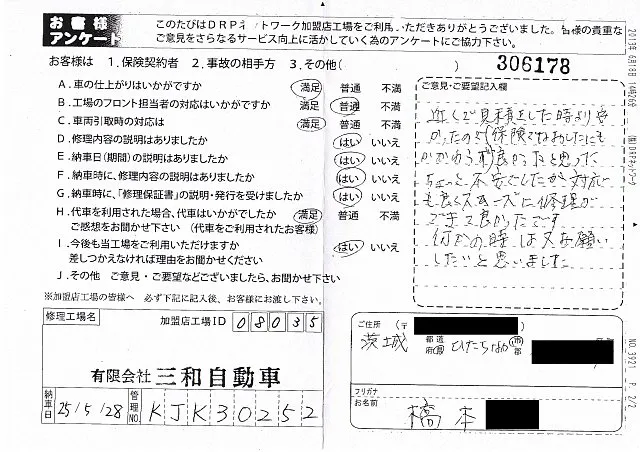 お客様
アンケート
このたびはDRPネットワーク加盟店工場をご利用いただきありがとうございました。皆様の貴重な
ご意見をさらなるサービス向上に活かしていく為のアンケートにご協力下さい。
お客様は 1.保険契約者 2.事故の相手方 3.その他( )
306178
A.車の仕上がりはいかがですか 満足 普通 不満
B.工場のフロント担当者の対応はいかがですか 満足 普通 不満
C.車両引取時の対応は 満足 普通 不満
D.修理内容の説明はありましたか はい いいえ
E.納車日(期間)の説明はありましたか はい いいえ
F.納車時に、修理内容の説明はありましたか はい いいえ
G.納車時に、「修理保証書」の説明・発行を受けましたか はい いいえ
H.代車を利用された場合、代車はいかがでしたか 満足 普通 不満
ご感想をお聞かせ下さい (代車をご利用されたお客様)
I.今後も当工場をご利用いただけますか はい いいえ
差しつかえなければ理由をお聞かせください
J.その他 ご意見・ご要望などございましたら、お聞かせ下さい
ご意見・ご要望記入欄
近くで見積をした時よりや
良かったと思った
ちょっと不安でしたが対応
も良くスムーズに修理が
できて良かったです
何かの時は又お願い
したいと思いました
※加盟店工場の皆様へ 必ず下記に記入後、お客様にお渡し下さい。
修理工場名 加盟店工場ID 08035
有限会社 三和自動車
納車日 25/5/28 管理NO. KJK30252
ご住所 (〒
茨城 都道府県 ひたちなか 市郡
フリガナ
お名前
橋本
2013年 6月18日 14時26分
NO.3921 P. 2/2